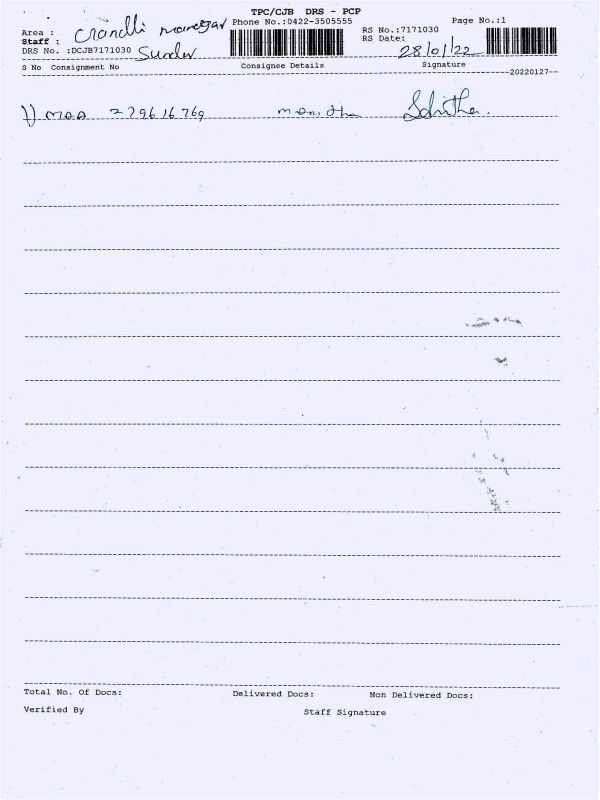 TPC/CJB DRS - PCP
Phone No.:0422-3505555 Page No.:1
Area : Crandhi
Staff : Sunder RS No.:7171030
DRS No. :DCJB7171030 RS Date: 28/01/22
S No Consignment No Consignee Details Signature
20220127
1) 279616769
Total No. Of Docs: Delivered Docs: Non Delivered Docs:
Verified By Staff Signature